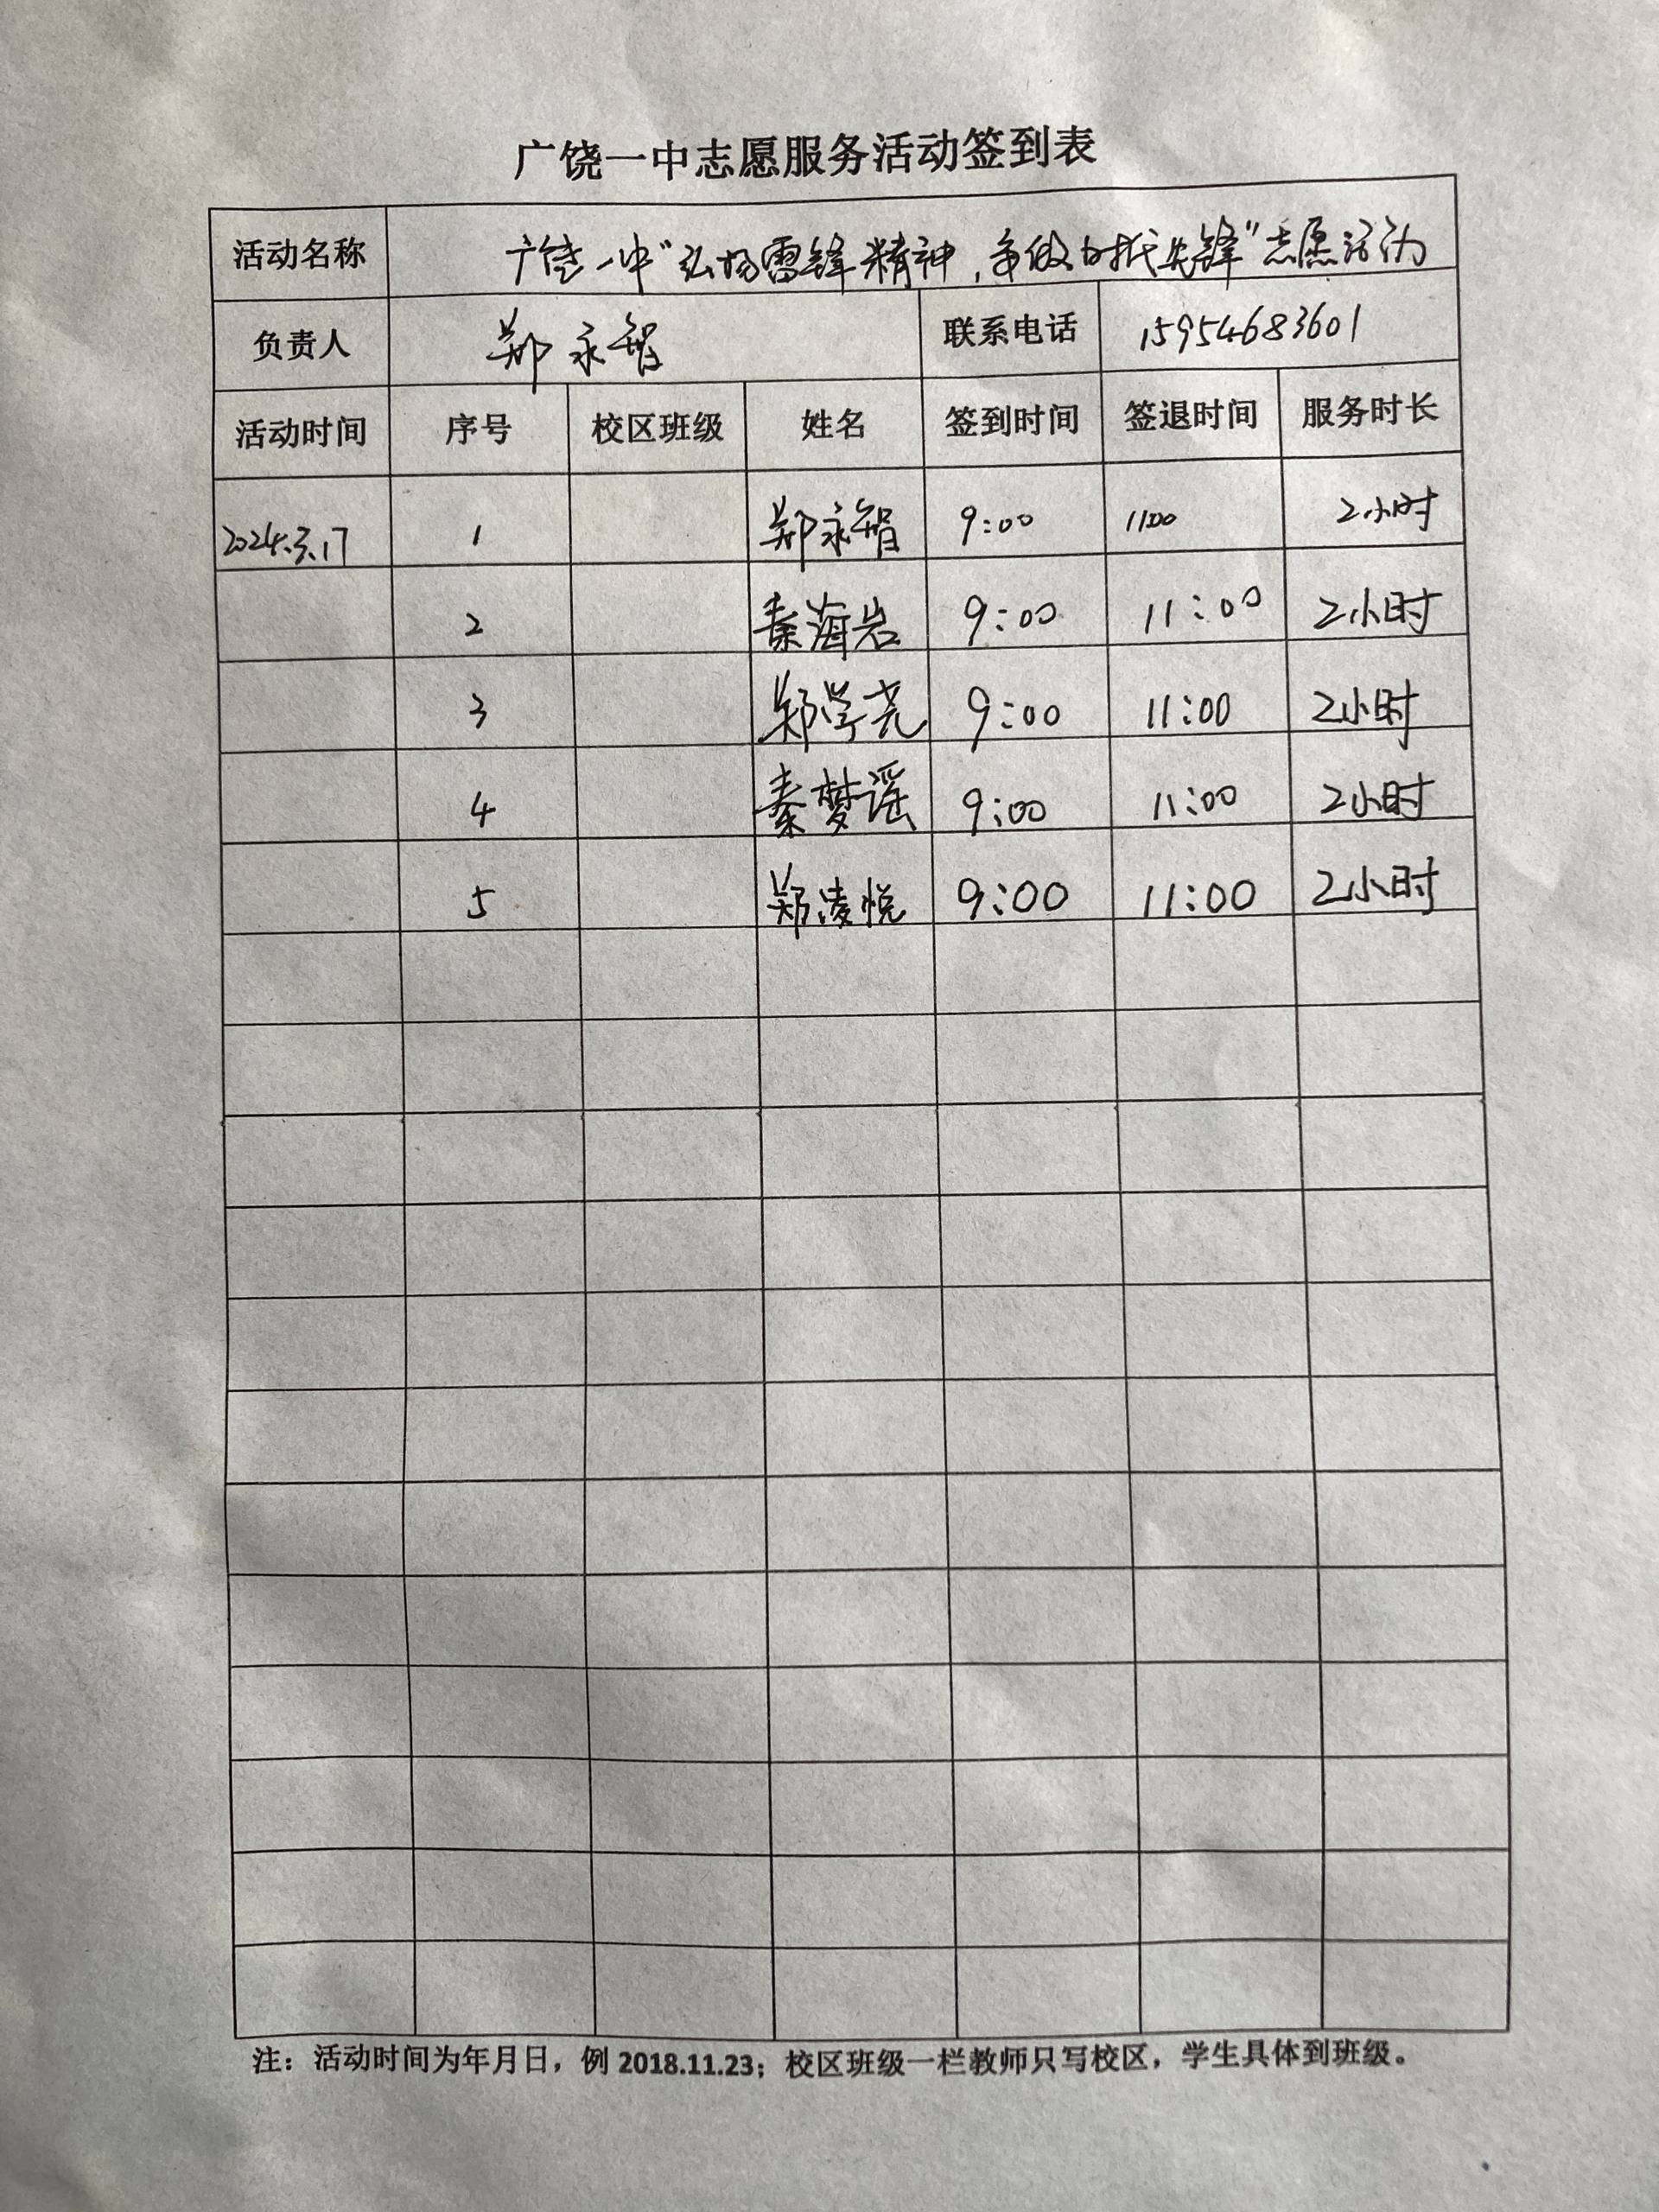 广饶一中志愿服务活动签到表
活动名称 广饶一中“弘扬雷锋精神,争做时代先锋”志愿活动
负责人 郑永智 联系电话 15954683601
活动时间 序号 校区班级 姓名 签到时间 签退时间 服务时长
2024.3.17 1 郑永智 9:00 11:00 2小时
2 秦海岩 9:00 11:00 2小时
3 郑学尧 9:00 11:00 2小时
4 秦梦谣 9:00 11:00 2小时
5 郑凌悦 9:00 11:00 2小时
注：活动时间为年月日，例 2018.11.23；校区班级一栏教师只写校区，学生具体到班级。